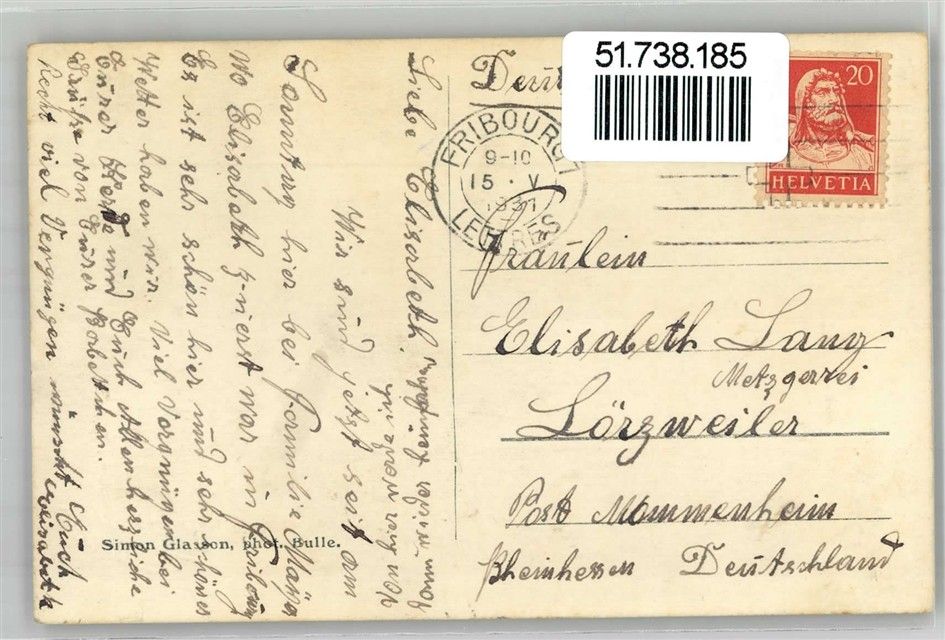 Liebe Elisabeth!
Wir sind jetzt seit am
Sonntag hier bei Familie
Wo Elisabeth zuerst war in Freiburg
Es ist sehr schön hier und sehr schönes
Wetter haben wir. Viel Vergnügen bei
Eurer und Euch Allen herzliche
Grüße von Eurer
Recht viel Vergnügen wünscht Euch
Elisabeth
Simon Glasson, phot. Bulle.
51.738.185
20
HELVETIA
FRIBOURG 1
9-10
15 · V
1931
LETTRES
Fräulein
Elisabeth Lang
Metzgerei
Lörzweiler
Post Mommenheim
Rheinhessen Deutschland